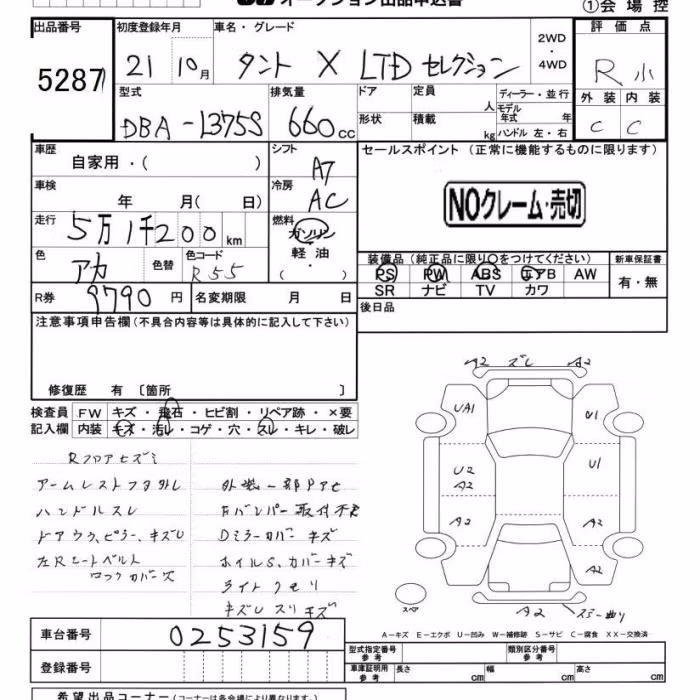 オークション出品申込書
①会場控
出品番号 初度登録年月 車名・グレード 2WD・4WD 評価点
5287 21 10月 タント X LTDセレクション R小
外装 内装
C C
型式 排気量 ドア 定員 人 ディーラー・並行
DBA-L375S 660cc 形状 積載 kg モデル年式 年
ハンドル 左・右
車歴 自家用・( ) シフト AT セールスポイント (正常に機能するものに限ります)
車検 年 月( 日) 冷房 AC
NOクレーム・売切
走行 5万1千200km 燃料 ガソリン・軽油・( )
色 アカ 色替 色コード R55
装備品 (純正品に限り○をつけてください) 新車保証書
PS PW ABS エアB AW 有・無
SR ナビ TV カワ
R券 9790円 名変期限 月 日 後日品
注意事項申告欄(不具合内容等は具体的に記入して下さい)
修復歴 有 〔箇所 〕
検査員記入欄 FW キズ・飛石・ヒビ割・リペア跡・×要
内装 キズ・汚レ・コゲ・穴・スレ・キレ・破レ
Rフロアヒズミ
アームレストフタ外レ
ハンドルスレ
ドアウラ、ピラー、キズU
左Rシートベルト
ロックカバー欠
外装一部Pアセ
Fバンパー取付不良
Dミラーカバーキズ
ホイルS、カバーキズ
ライトクモリ
キズUスリキズ
A2 ズレ A2
UA1 U1
U2 U1
A2
A2 A2
A2
スペア
A2
A－キズ E－エクボ U－凹み W－補修跡 S－サビ C－腐食 XX－交換済
車台番号 0253159
登録番号
型式指定番号 参考 類別区分番号 参考
車庫証明用 参考 長さ cm 幅 cm 高さ cm
希望出品コーナー (コーナーは各会場により異なります)